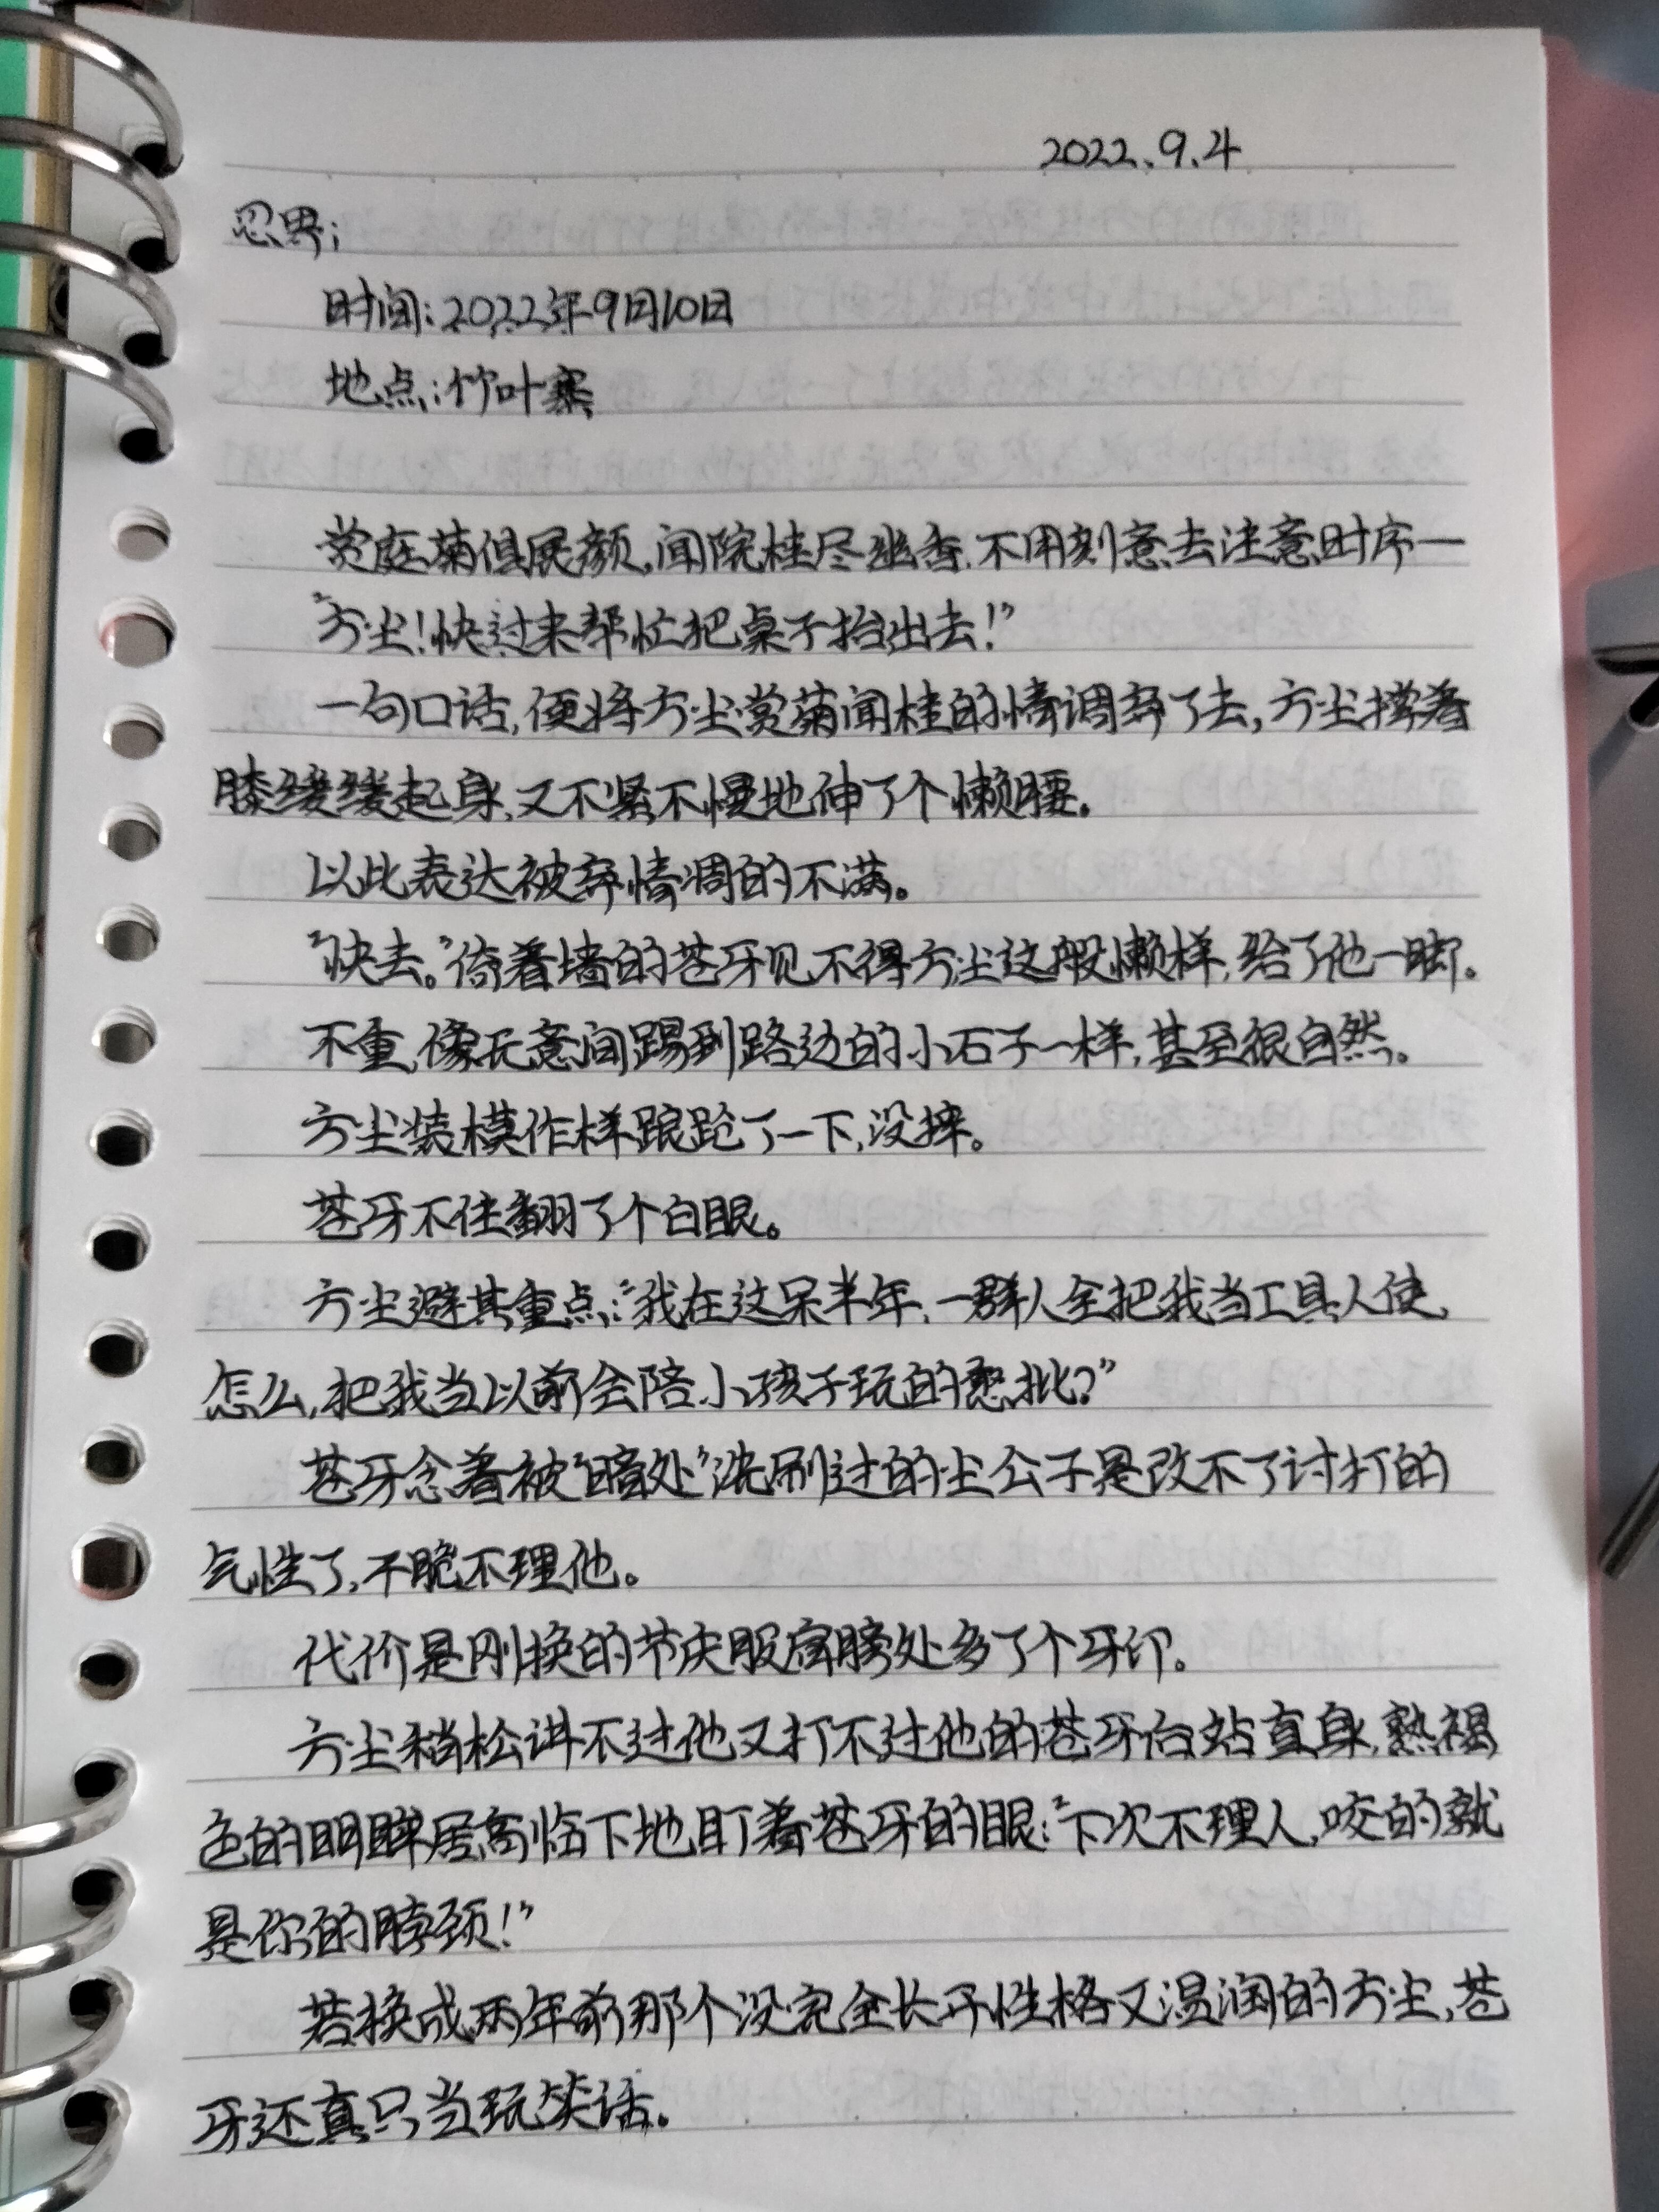 2022.9.4
忍界:
时间:2022年9月10日
地点:竹叶寨
赏庭菊俱展颜,闻院桂尽幽香.不用刻意去注意时序—
"方尘!快过来帮忙把桌子抬出去!"
一句口话,便将方尘赏菊闻桂的情调弃了去,方尘撑着
膝缓缓起身,又不紧不慢地伸了个懒腰。
以此表达被弃情调的不满。
"快去。"倚着墙的苍牙见不得方尘这般懒样,给了他一脚。
不重,像无意间踢到路边的小石子一样,甚至很自然。
方尘装模作样踉跄了一下,没摔。
苍牙不住翻了个白眼。
方尘避其重点:"我在这呆半年,一群人全把我当工具人使,
怎么,把我当以前会陪小孩子玩的憨批?"
苍牙念着被"暗处"洗刷过的尘公子是改不了讨打的
气性了,干脆不理他。
代价是刚换的节庆服肩膀处多了个牙印。
方尘稍松讲不过他又打不过他的苍牙后站直身,熟褐
色的明眸居高临下地盯着苍牙的眼:"下次不理人,咬的就
是你的脖颈!"
若换成两年前那个没完全长牙性格又温润的方尘,苍
牙还真只当玩笑话。